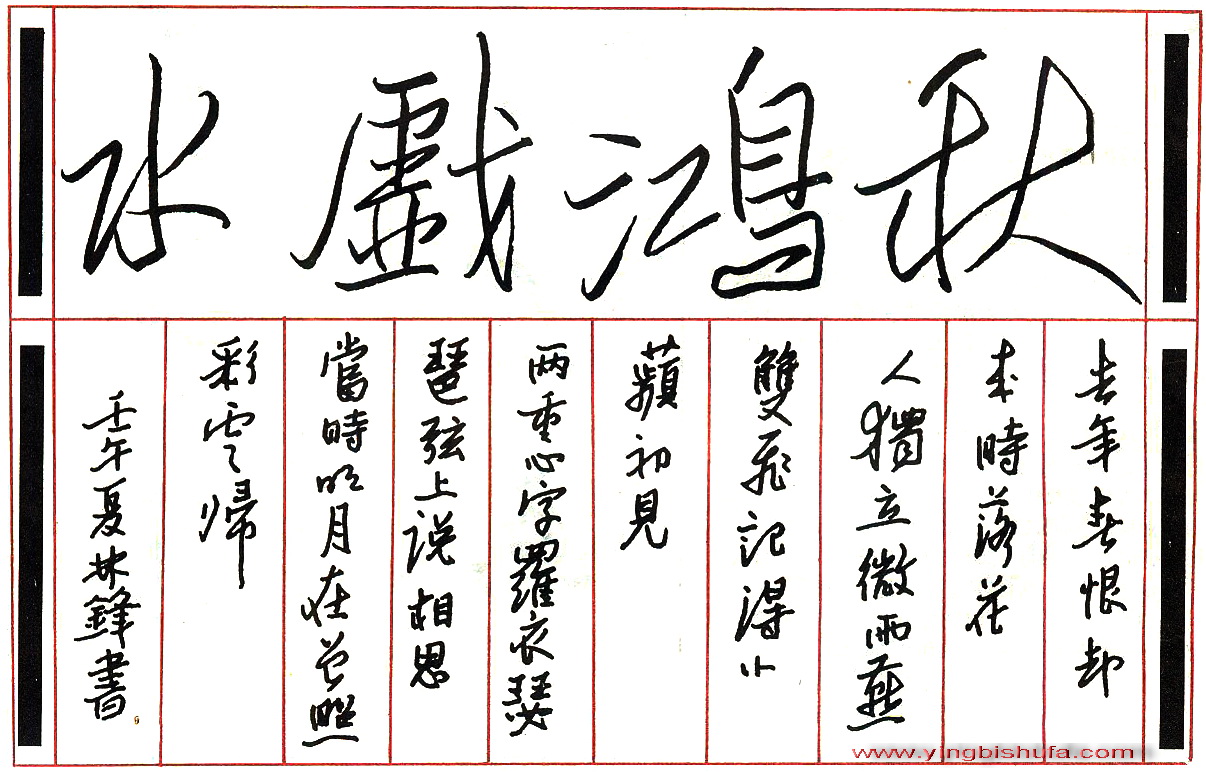 秋鴻戯水
去年春恨却
来時落花
人獨立微雨燕
雙飛記得小
蘋初見
两重心字羅衣琵
琶弦上说相思
當時明月在曾照
彩雲歸
壬午夏林鋒書
www.yingbishufa.com